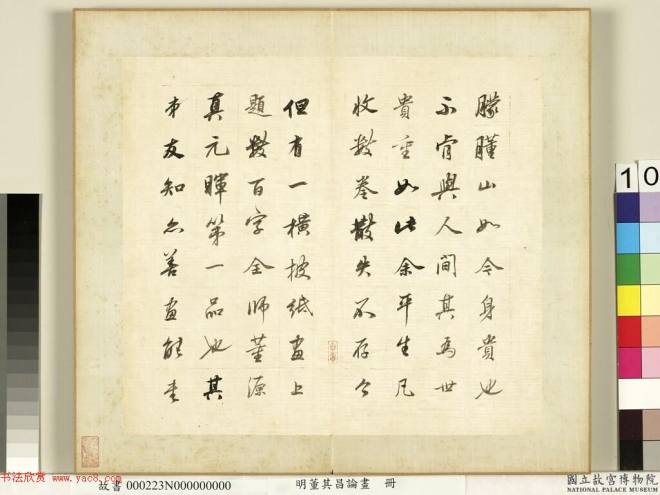 朦朣山如今身貴也
不肯與人間其為世
貴重如此余平生凡
收數卷散失不存今
但有一橫披紙畫上
題數百字全師董源
真元暉第一品也其
友知亦善畫能
10
故書 000223N000000000
明董其昌論畫 冊
國立故宮博物院
NATIONAL PALACE MUSEUM
书法欣赏 www.yac8.com